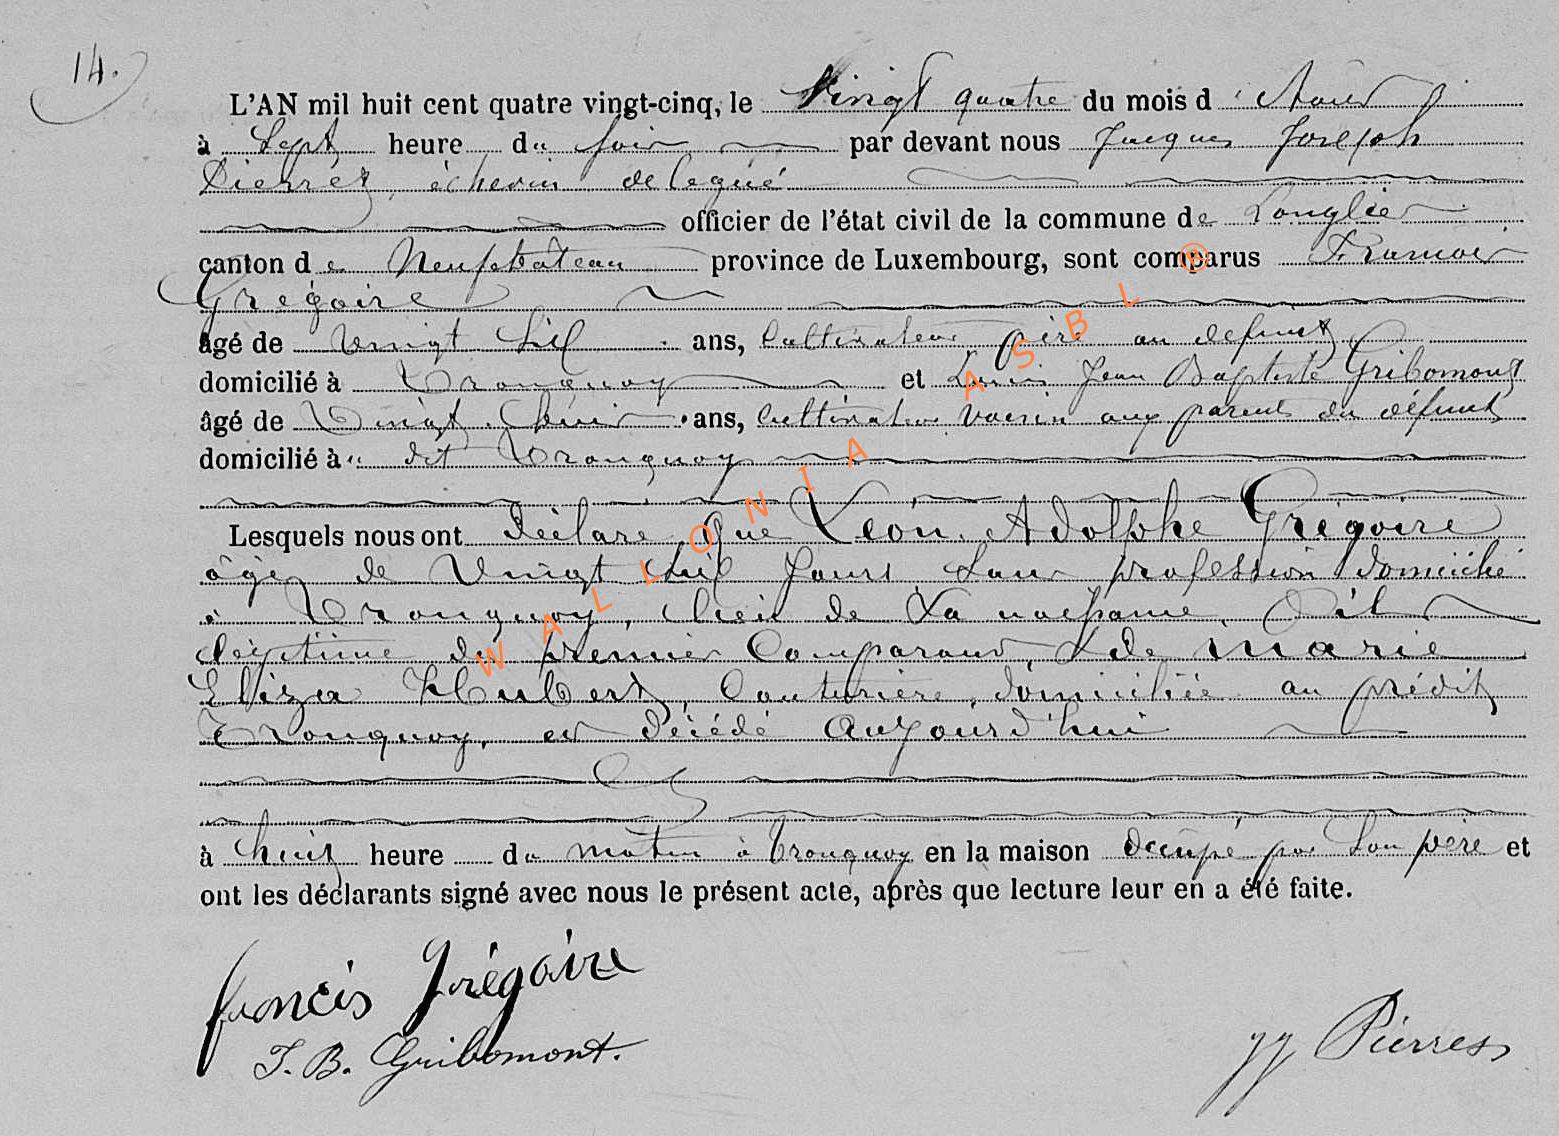 14.
L'AN mil huit cent quatre vingt-cinq, le Vingt quatre du mois d'Août
à Sept heure du soir par devant nous Jacques Joseph
Pierret échevin delegué
officier de l'état civil de la commune de Longlier
canton de Neufchâteau province de Luxembourg, sont comparus Francois
Grégoire
âgé de Vingt six ans, Cultivateur, père au defunt
domicilié à Tronquoy et Louis Jean Baptiste Gribomont
âgé de Vingt ans, Cultivateur voisin aux parents du défunt
domicilié au dit Tronquoy
Lesquels nous ont déclaré que Léon Adolphe Grégoire
âgé de Vingt six jours sans profession domicilié
à Tronquoy, lieu de sa naissance, fils
légitime du premier Comparant & de Marie
Eliza Hubert, Couturière, domiciliée au prédit
Tronquoy, est décédé aujourd'hui
à huit heure du matin à Tronquoy en la maison occupé par son père et
ont les déclarants signé avec nous le présent acte, après que lecture leur en a été faite.
francis Grégoire
J. B. Gribomont.
JJ Pierres
WALLONIA ASBL ®